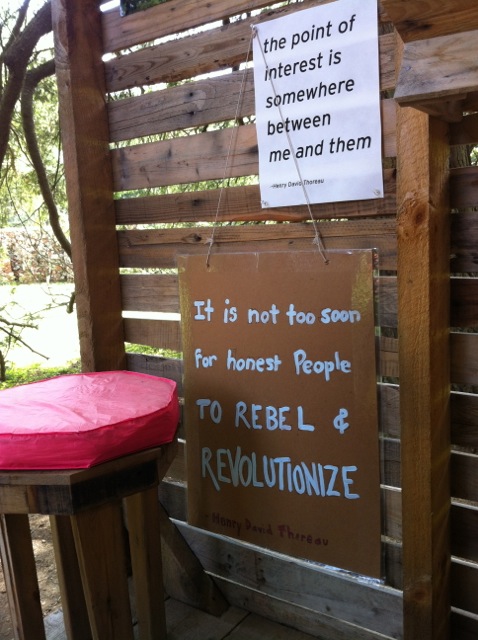 the point of
interest is
somewhere
between
me and them
-Henry David Thoreau
It is not too soon
For honest People
TO REBEL &
REVOLUTIONIZE
- Henry David Thoreau